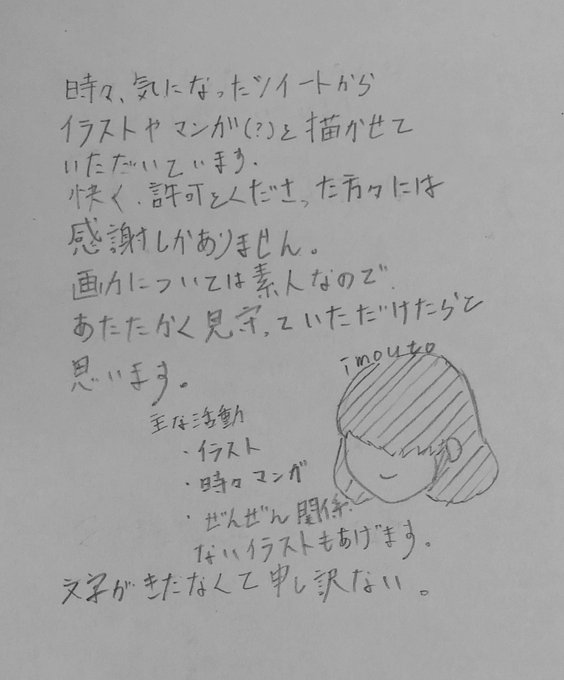 時々、気になったツイートから
イラストやマンガ(?)を描かせて
いただいています.
快く、許可をくださった方々には
感謝しかありません。
画力については素人なので、
あたたかく見守っていただけたらと
思います。
imouto
主な活動
・イラスト
・時々マンガ
・ぜんぜん関係
ないイラストもあげます。
文字がきたなくて申し訳ない。